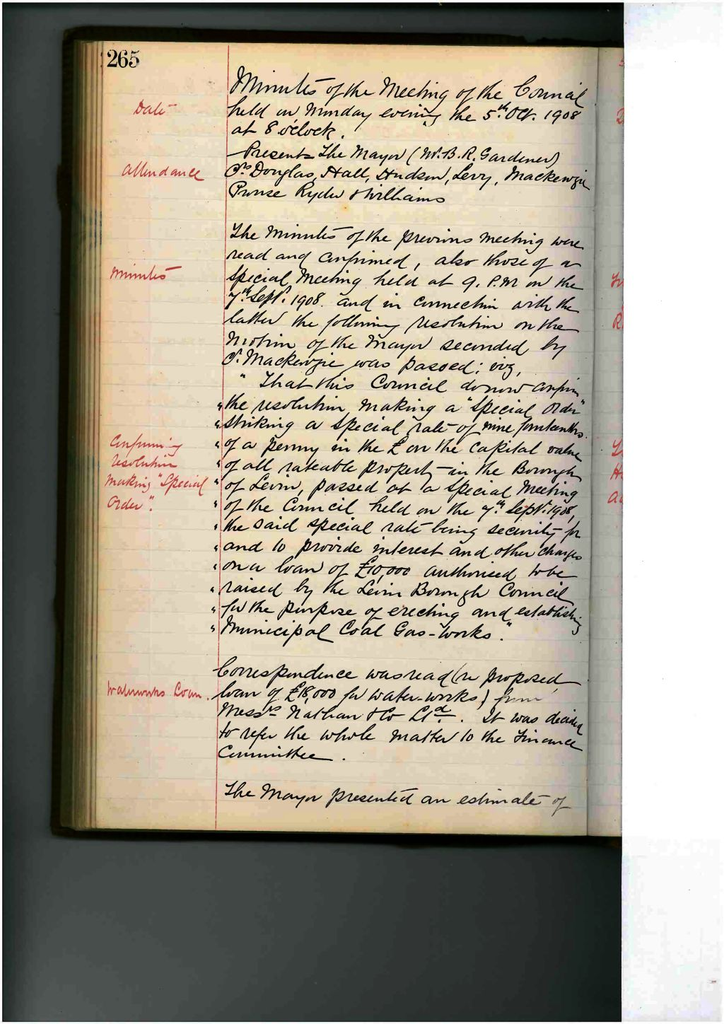 265
Minutes of the Meeting of the Council
Date
held on Monday evening the 5th Oct. 1908
at 8 o'clock.
Present The Mayor (Mr. B. R. Gardener)
Attendance
Crs Douglas, Hall, Hudson, Levy, Mackenzie
Prouse Ryder & Williams
The Minutes of the previous meeting were
read and confirmed, also those of a
Minutes
Special Meeting held at 9. P.M on the
7th Septr. 1908 and in connection with the
latter the following resolution on the
motion of the Mayor seconded by
Cr. Mackenzie was passed; viz,
"That this Council do now confirm
"the resolution making a "Special Order"
"striking a special rate of nine
Confirming
resolution
making "Special
Order".
"of a penny in the £ on the capital value
"of all rateable property in the Borough
"of Levin, passed at a Special Meeting
"of the Council held on the 7th Septr. 1908,
"the said special rate being security for
"and to provide interest and other charges
"on a loan of £10,000 authorised to be
"raised by the Levin Borough Council
"for the purpose of erecting and establishing
"Municipal Coal Gas-Works."
Correspondence was read (re proposed
Waterworks Loan.
loan of £18,000 for water-works) from
Messrs Nathan & Co Ltd. It was decided
to refer the whole matter to the Finance
Committee.
The Mayor presented an estimate of